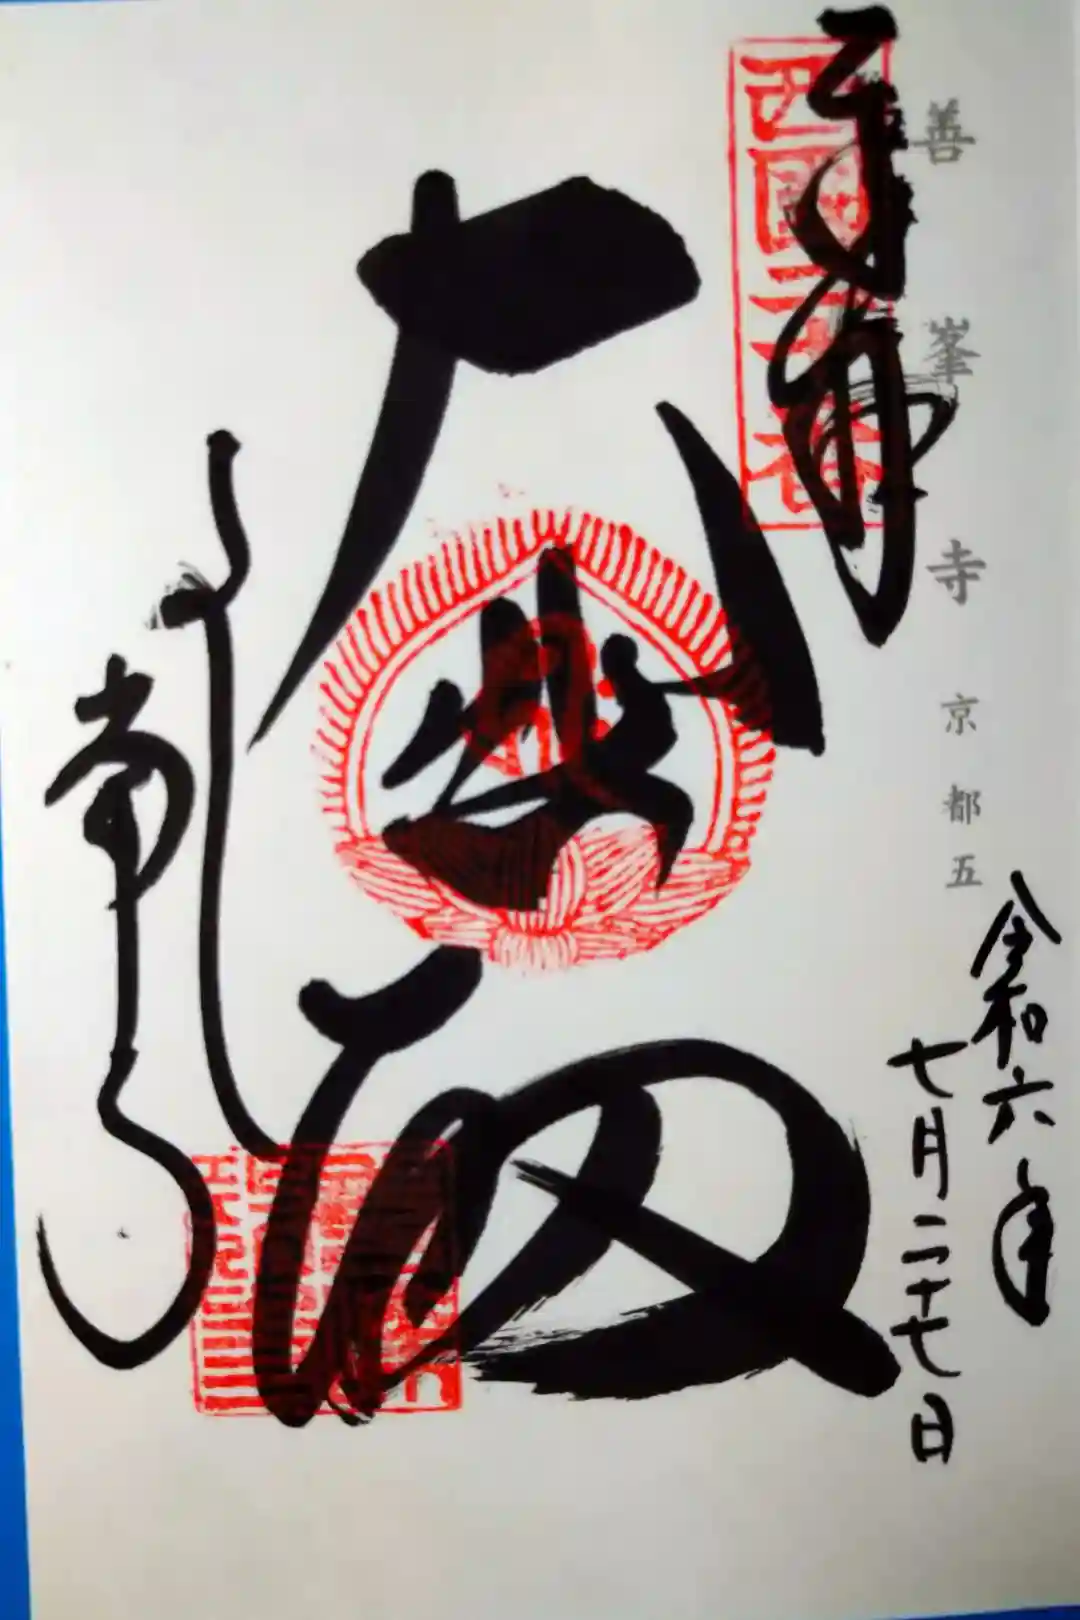 善峯寺 京都五
令和六年
七月二十七日
奉拝
西國二十番
大悲殿